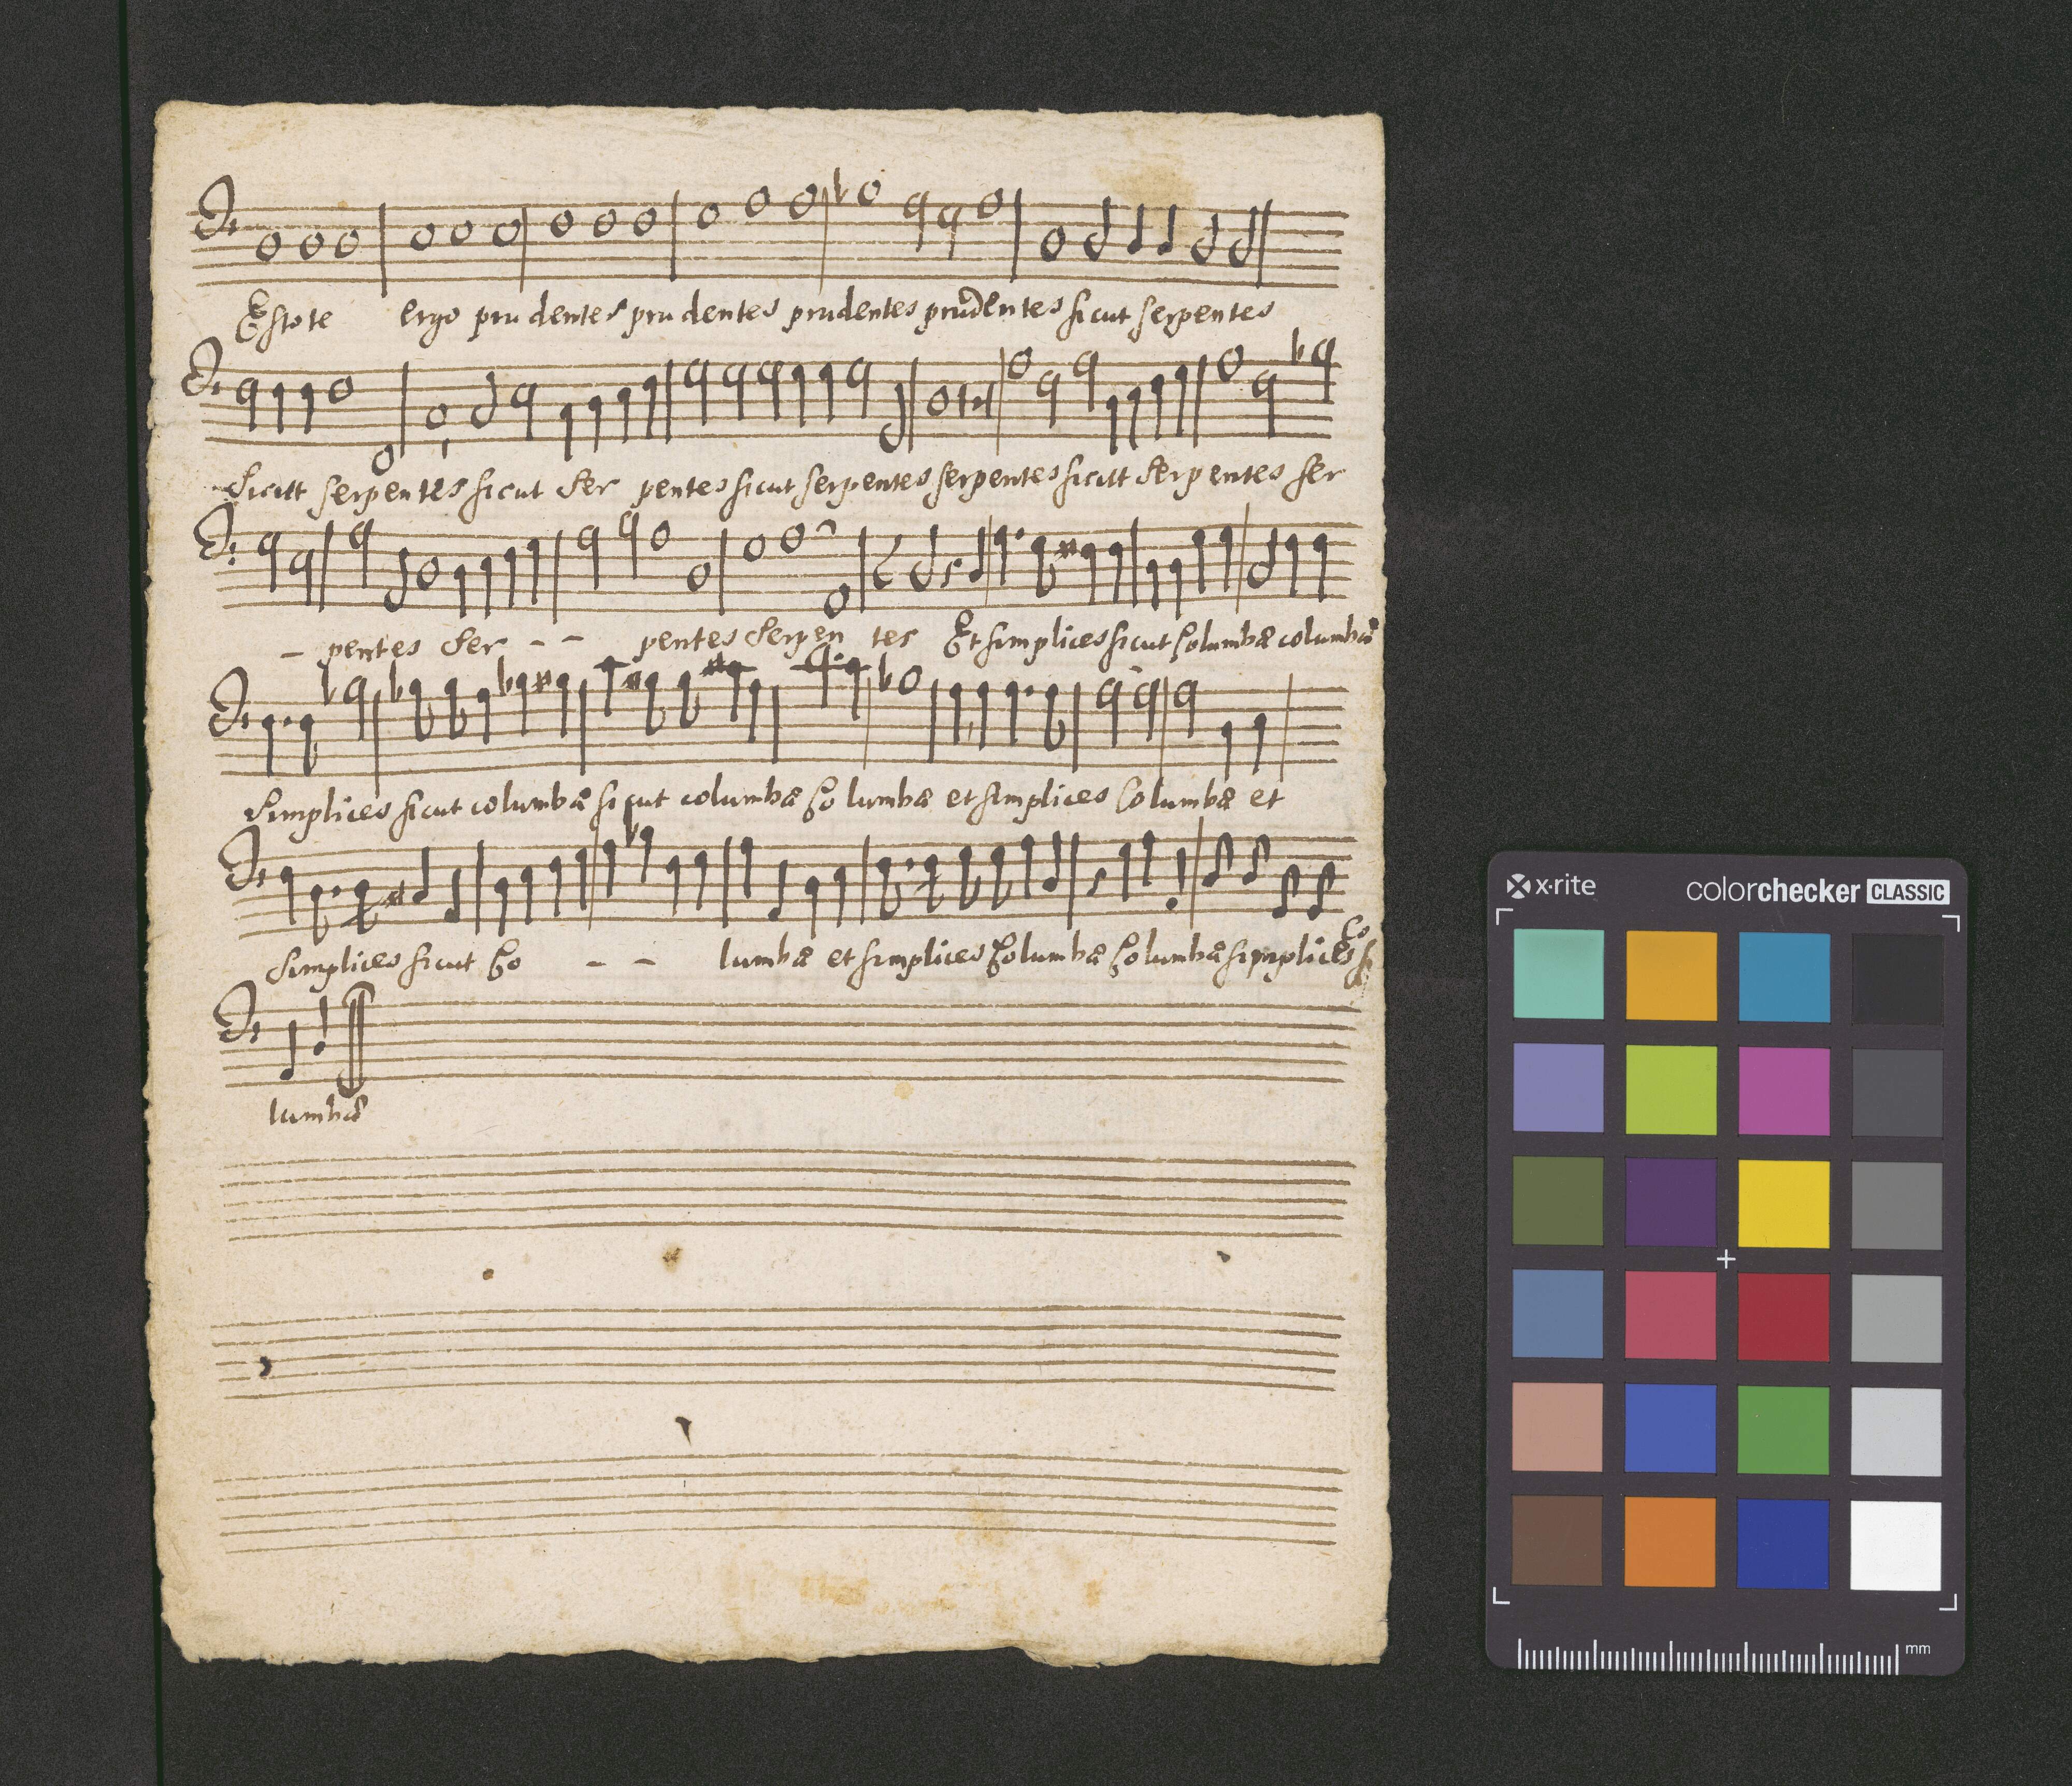 Estote ergo prudentes prudentes prudentes prudentes sicut serpentes
Sicut serpentes sicut Ser pentes sicut serpentes serpentes sicut Serpentes ser
- pentes Ser - - pentes Serpen tes Et simplices sicut Columbæ columbæ
Simplices sicut columbæ sicut columbæ Co lumbæ et simplices Columbæ et
Simplices sicut Co - - lumbæ et simplices Columbæ Columbæ simplices Co
lumbæ
x-rite
colorchecker CLASSIC
mm